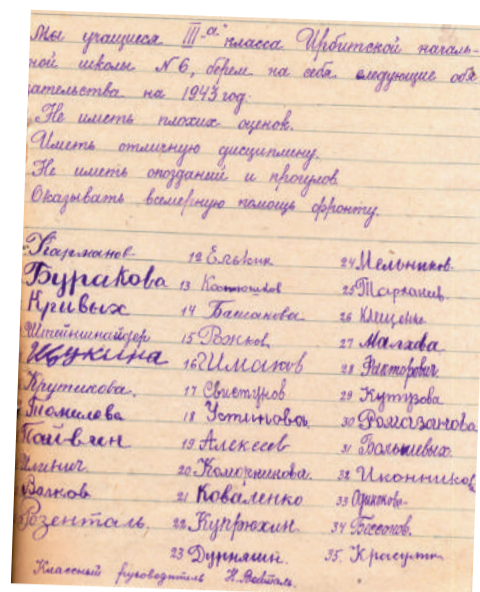 Мы учащиеся III-"а" класса Ирбитской началь-
ной школы №6, берем на себя следующие обя
зательства на 1943 год.
Не иметь плохих оценок.
Иметь отличную дисциплину.
Не иметь опозданий и прогулов
Оказывать всемерную помощь фронту.
Карманов
Буракова
Кривых
Штейншнайдер
Щукина
Крутикова.
Томилова
Пойвин
Илинич
Волков
Розенталь
12 Елькин
13
14 Башакова
15 Рожков
16 Шмаков
17 Свистунов
18 Устинова
19 Алексеев
20 Коморникова.
21 Коваленко
22 Купрюхин
23 Дурняшин.
24 Мельников.
25
26 Клещенко
27 Малхова
28 Фикторович
29 Кутузова
30 Ромазанова
31 Большевых
32 Иконников
33
34 Бессонов.
35.
Классный руководитель Н.